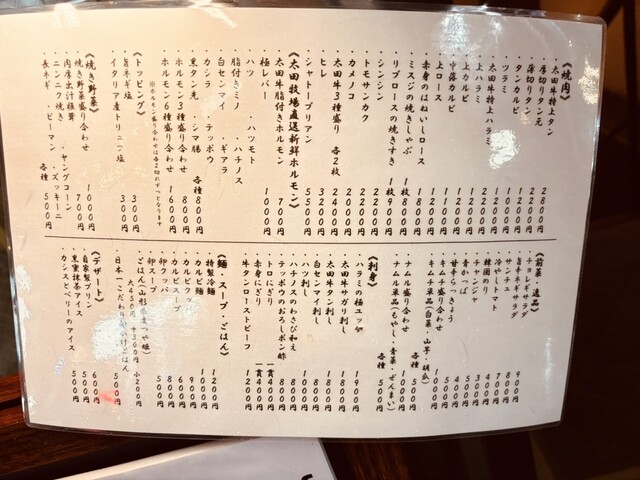 《焼肉》
・太田牛特上タン 2800円
・厚切りタン元 2200円
・薄切りタン 1500円
・タンカルビ 1200円
・ツラミ 1000円
・太田牛特上ハラミ 2200円
・上ハラミ
・上カルビ
・中落カルビ
・上ロース
・赤身のはねいしロース 1200円
・ミスジの焼きしゃぶ 1枚800円
・リブロースの焼きすき 1枚900円
・シンシン
・トモサンカク 2200円
・カメノコ 2000円
・太田牛3種盛り 各2枚 2400円
・ヒレ 3200円
・シャトーブリアン 5500円
《太田牧場直送新鮮ホルモン》
・太田牛脂付きホルモン 700円
・極レバー 1000円
・ハツ ・ハツモト
・脂付きミノ ・ハチノス
・白センマイ ・ギアラ
・カシラ ・テッポウ
・黒タン先 ・シマ腸 各種800円
・ホルモン3種盛り合わせ 800円
・ホルモン6種盛り合わせ 1600円
※ホルモン盛り合わせは各2切れずつとなります
《トッピング》
・旨ネギ塩 300円
・イタリア産トリュフ塩 300円
《焼き野菜》
・焼き野菜盛り合わせ 1000円
・肉厚出汁椎茸 700円
・ニンニク焼き ・ヤングコーン
・長ネギ ・ピーマン ・ズッキーニ 各種500円
《前菜・逸品》
・チョレギサラダ 900円
・旨辛ネギサラダ 800円
・サンチュ
・冷やしトマト
・韓国のり
・チャンジャ
・青かっぱ
・甘辛らっきょう
・キムチ盛り合わせ
・キムチ単品(白菜・山芋・胡瓜) 各種500円
・ナムル盛り合わせ 1000円
・ナムル単品(もやし・青菜・ぜんまい) 各種500円
《刺身》
・ハラミの極ユッケ 1900円
・太田牛サガリ刺し
・太田牛タン刺し
・白センマイ刺し 800円
・ハツ刺し 1000円
・ハチノスのわさび和え 800円
・テッポウのおろしポン酢 800円
・トロにぎり 一貫400円
・赤身にぎり 一貫400円
・牛タンローストビーフ 1200円
《麺・スープ・ごはん》
・特製冷麺 1200円
・カルビ麺 1000円
・カルビクッパ 900円
・カルビスープ
・卵クッパ
・卵スープ 500円
・ごはん(山形県産つや姫) 大450円 中300円 小200円
・日本一こだわり卵かけごはん 500円
《デザート》
・自家製プリン 600円
・黒蜜抹茶アイス 500円
・カシスとベリーのアイス 500円